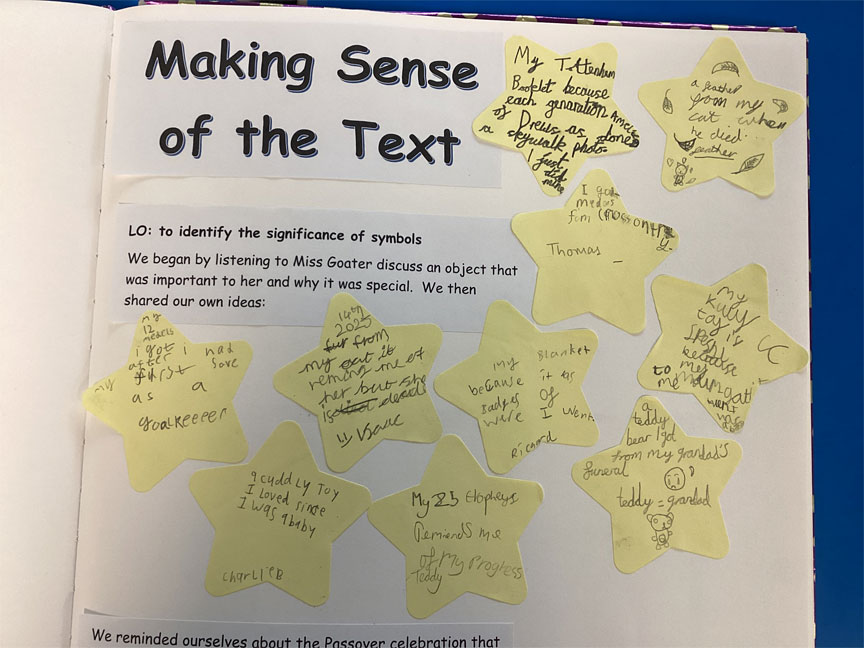 Making Sense
of the Text
My Tottenham
Booklet because
each generation
of Drews as done
a skywalk photo.
I just
did
mine
a feather
from my
cat when
he died.
feather
LO: to identify the significance of symbols
We began by listening to Miss Goater discuss an object that
was important to her and why it was special. We then
shared our own ideas:
I got
medals
Thomas
my
12
medals
i got i had
after
my first save
as a
goalkeeeer
14th
2025
fur from
my cat it
remind me of
her but she
is dead
my Blanket
because it as
badges of
were I went.
Ricard
my
toy is
because
to me my
a
teddy
bear I got
from my grandad's
funeral
teddy = grandad
a cuddly Toy
I loved since
I was a baby
CharlieB
My 25 tropheys
Reminds me
of My Progress
Teddy
We reminded ourselves about the Passover celebration that